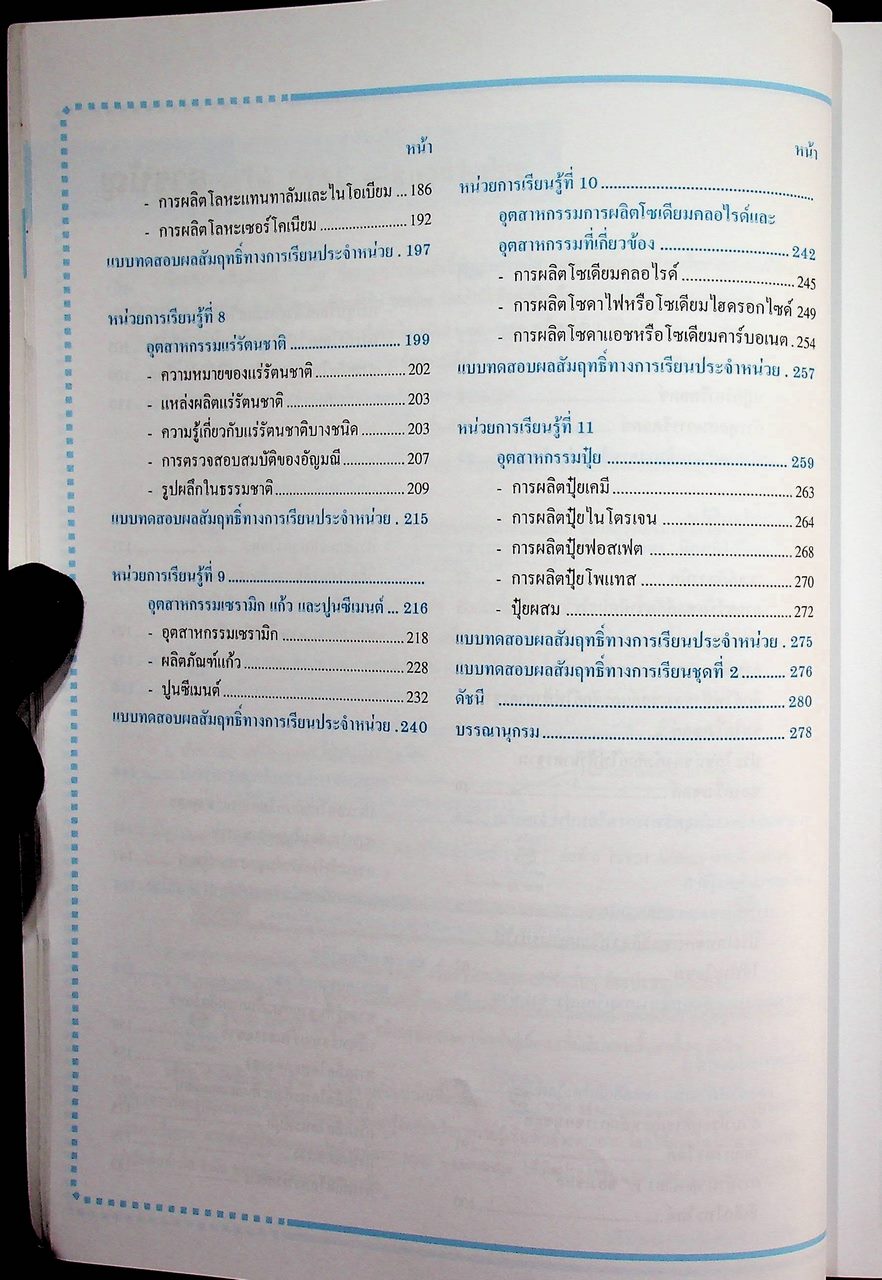 หน้า
- การผลิตโลหะแทนทาลัมและไนโอเบียม ... 186
- การผลิตโลหะเซอร์โคเนียม ..................... 192
แบบทดสอบผลสัมฤทธิ์ทางการเรียนประจำหน่วย . 197
หน่วยการเรียนรู้ที่ 8
อุตสาหกรรมแร่รัตนชาติ ............................ 199
- ความหมายของแร่รัตนชาติ ...................... 202
- แหล่งผลิตแร่รัตนชาติ ............................. 203
- ความรู้เกี่ยวกับแร่รัตนชาติบางชนิด ........... 203
- การตรวจสอบสมบัติของอัญมณี ............... 207
- รูปผลึกในธรรมชาติ ................................ 209
แบบทดสอบผลสัมฤทธิ์ทางการเรียนประจำหน่วย . 215
หน่วยการเรียนรู้ที่ 9 ..................................................
อุตสาหกรรมเซรามิก แก้ว และปูนซีเมนต์ ... 216
- อุตสาหกรรมเซรามิก ............................... 218
- ผลิตภัณฑ์แก้ว ........................................ 228
- ปูนซีเมนต์ ............................................. 232
แบบทดสอบผลสัมฤทธิ์ทางการเรียนประจำหน่วย . 240
หน้า
หน่วยการเรียนรู้ที่ 10 .....................................................
อุตสาหกรรมการผลิตโซเดียมคลอไรด์และ
อุตสาหกรรมที่เกี่ยวข้อง ................................ 242
- การผลิตโซเดียมคลอไรด์ ............................ 245
- การผลิตโซดาไฟหรือโซเดียมไฮดรอกไซด์ 249
- การผลิตโซดาแอชหรือโซเดียมคาร์บอเนต . 254
แบบทดสอบผลสัมฤทธิ์ทางการเรียนประจำหน่วย . 257
หน่วยการเรียนรู้ที่ 11
อุตสาหกรรมปุ๋ย ............................................. 259
- การผลิตปุ๋ยเคมี ............................................ 263
- การผลิตปุ๋ยไนโตรเจน ................................ 264
- การผลิตปุ๋ยฟอสเฟต ................................... 268
- การผลิตปุ๋ยโพแทส ..................................... 270
- ปุ๋ยผสม ....................................................... 272
แบบทดสอบผลสัมฤทธิ์ทางการเรียนประจำหน่วย . 275
แบบทดสอบผลสัมฤทธิ์ทางการเรียนชุดที่ 2 .......... 276
ดัชนี ...................................................................... 280
บรรณานุกรม ............................................................ 278